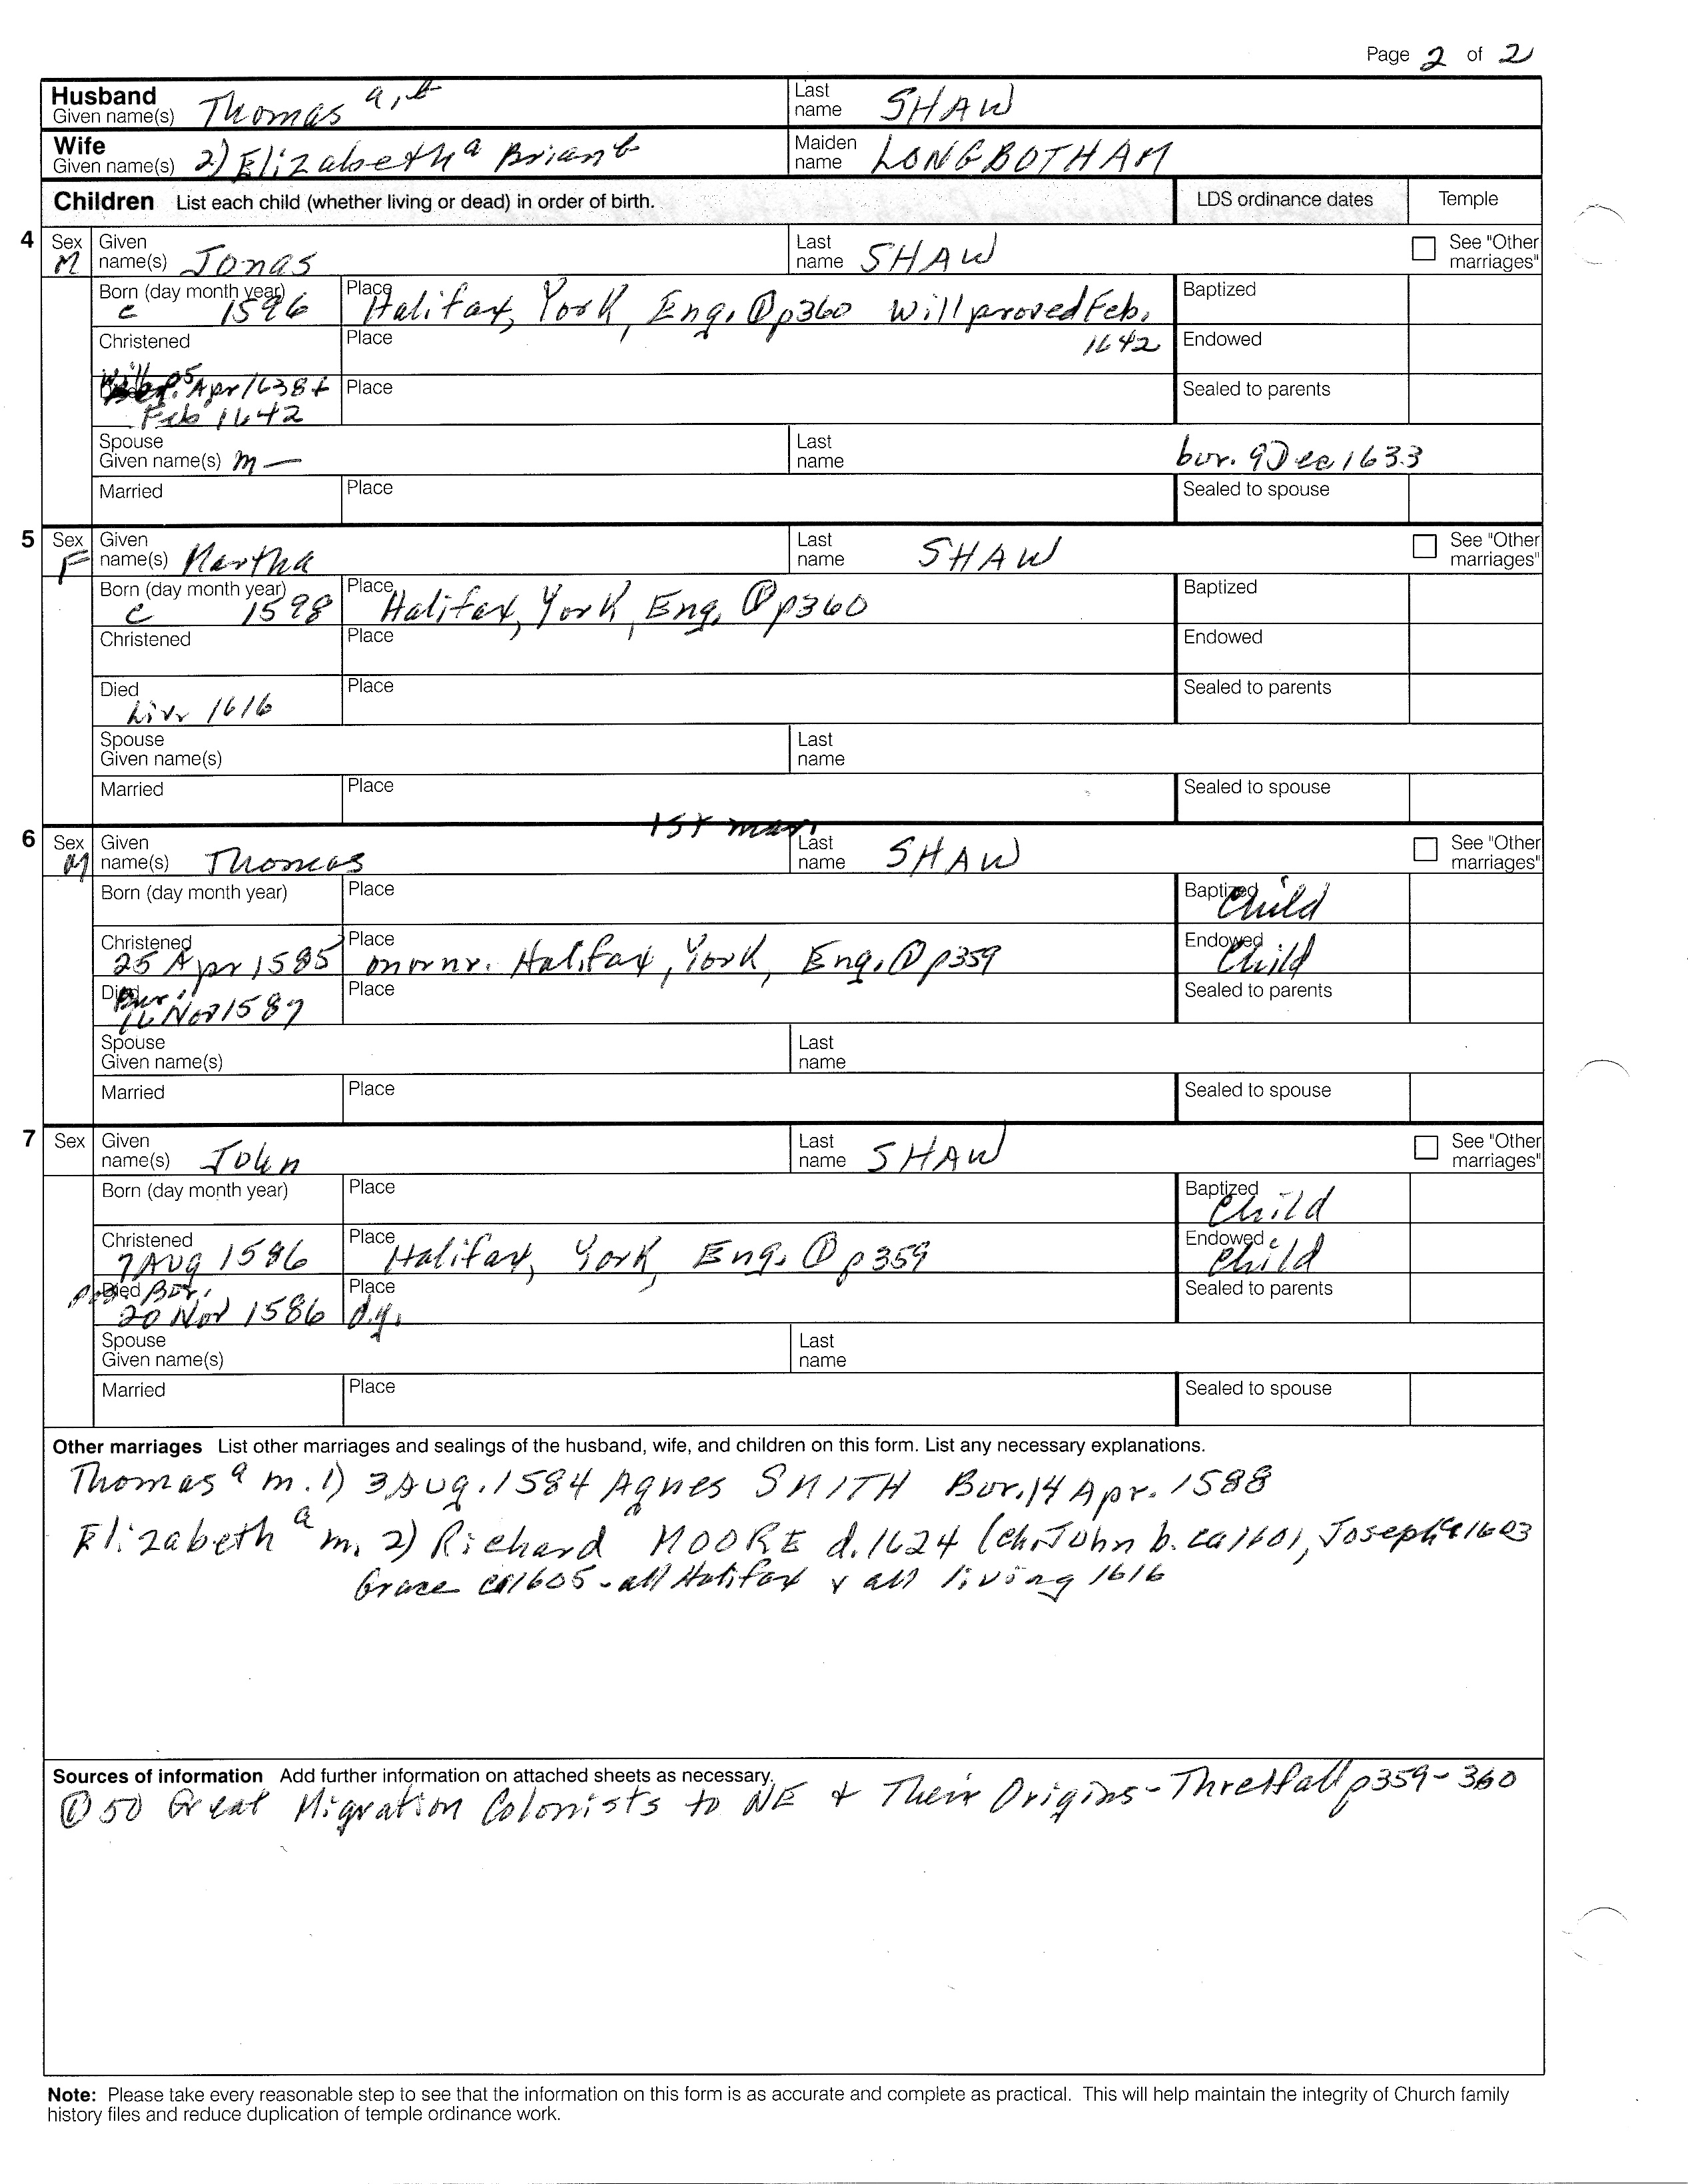 Page 2 of 2
Husband Given name(s) Thomas a,b Last name SHAW
Wife Given name(s) 2) Elizabeth a Brian b Maiden name LONGBOTHAM
Children List each child (whether living or dead) in order of birth. LDS ordinance dates Temple
4 Sex M Given name(s) Jonas Last name SHAW See "Other marriages"
Born (day month year) c 1596 Place Halifax, York, Eng. ① p360 Will proved Feb. 1642 Baptized
Christened Place Endowed
Will p. 5 Apr 1638 + Feb 1642 Place Sealed to parents
Spouse Given name(s) M — Last name bur. 9 Dec 1633
Married Place Sealed to spouse
5 Sex F Given name(s) Martha Last name SHAW See "Other marriages"
Born (day month year) c 1598 Place Halifax, York, Eng. ① p360 Baptized
Christened Place Endowed
Died Livr 1616 Place Sealed to parents
Spouse Given name(s) Last name
Married Place Sealed to spouse
1st mar.
6 Sex M Given name(s) Thomas Last name SHAW See "Other marriages"
Born (day month year) Place Baptized Child
Christened 25 Apr 1585 Place on or nr. Halifax, York, Eng. ① p359 Endowed Child
Died Bur. 16 Nov 1587 Place Sealed to parents
Spouse Given name(s) Last name
Married Place Sealed to spouse
7 Sex Given name(s) John Last name SHAW See "Other marriages"
Born (day month year) Place Baptized Child
Christened 7 AUG 1586 Place Halifax, York, Eng. ① p359 Endowed Child
Died Bur. 20 Nov 1586 Place d.y. Sealed to parents
Spouse Given name(s) Last name
Married Place Sealed to spouse
Other marriages List other marriages and sealings of the husband, wife, and children on this form. List any necessary explanations.
Thomas a m. 1) 3 AUG. 1584 Agnes SMITH Bur. 14 Apr. 1588
Elizabeth a m. 2) Richard MOORE d. 1624 (ch. John b. ca 1601, Joseph ca 1603
Grace ca 1605 - all Halifax & all living 1616
Sources of information Add further information on attached sheets as necessary.
① 50 Great Migration Colonists to NE & Their Origins - Threlfall p359-360
Note: Please take every reasonable step to see that the information on this form is as accurate and complete as practical. This will help maintain the integrity of Church family
history files and reduce duplication of temple ordinance work.